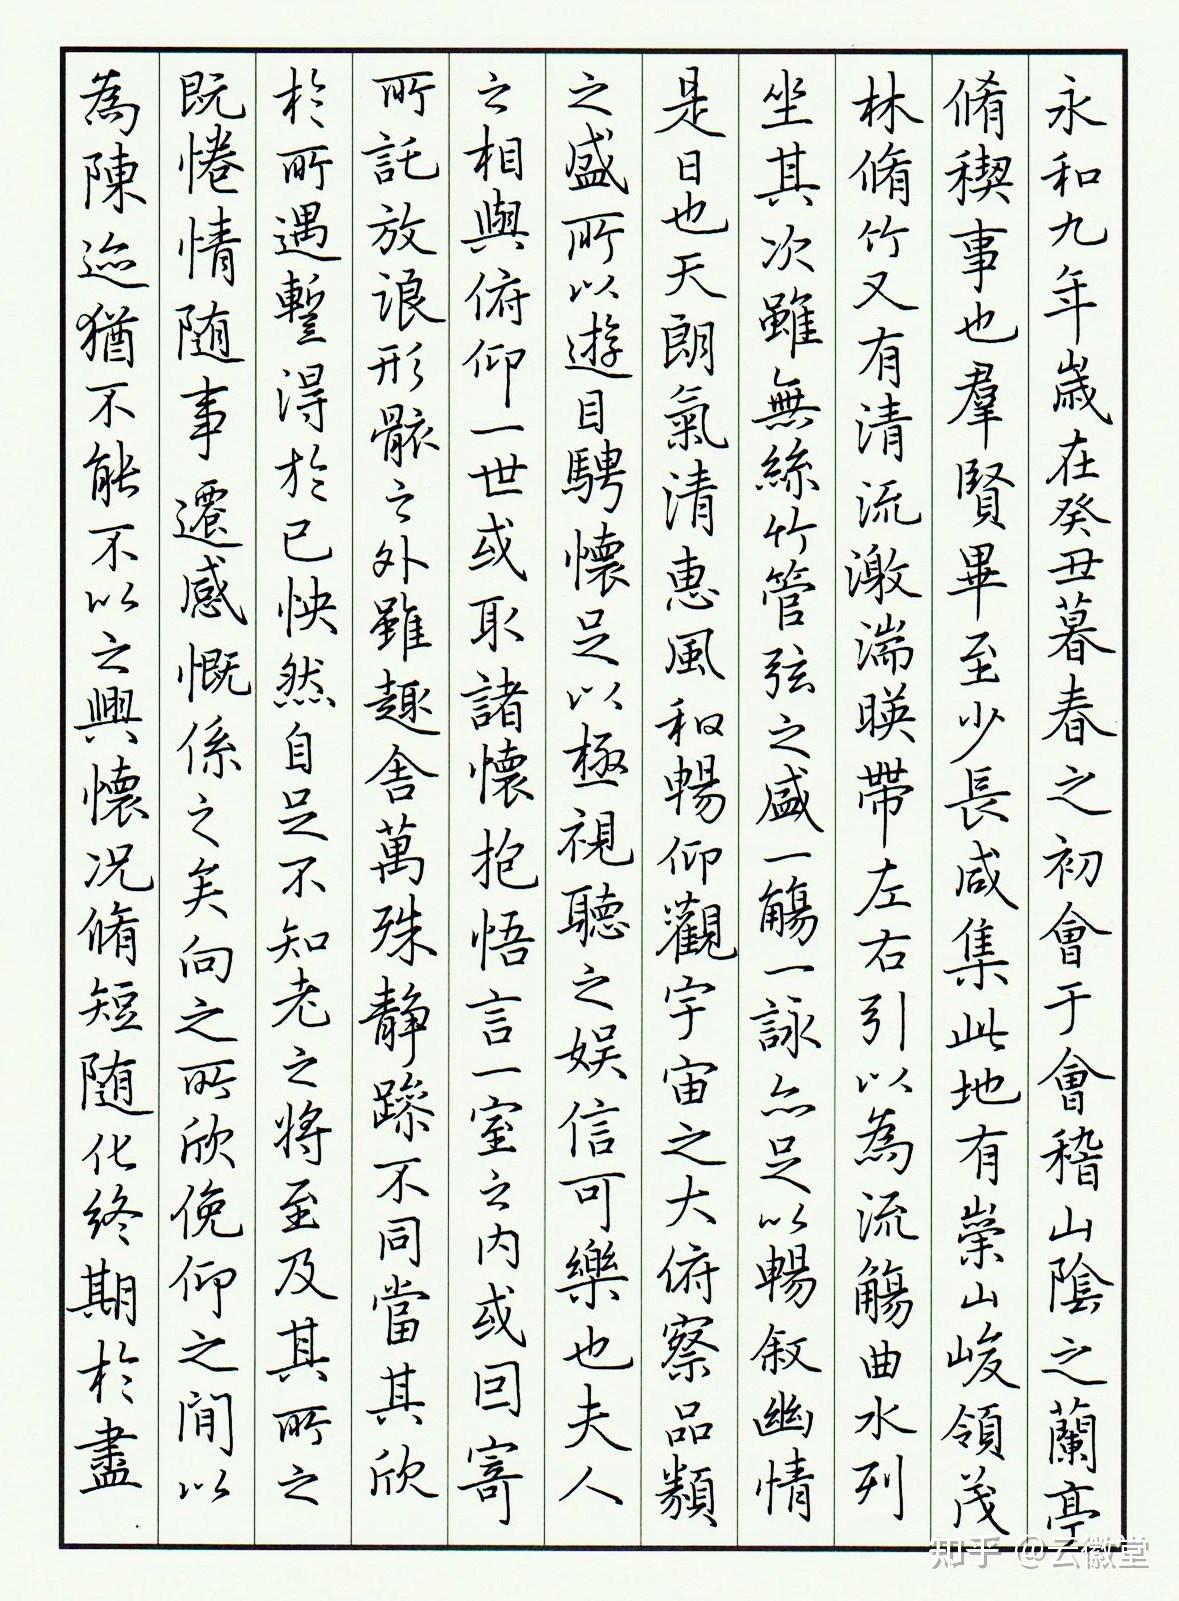 永和九年歲在癸丑暮春之初會于會稽山陰之蘭亭
脩稧事也羣賢畢至少長咸集此地有崇山峻領茂
林脩竹又有清流激湍暎帶左右引以為流觴曲水列
坐其次雖無絲竹管弦之盛一觴一詠亦足以暢叙幽情
是日也天朗氣清惠風和暢仰觀宇宙之大俯察品類
之盛所以遊目騁懷足以極視聽之娛信可樂也夫人
之相與俯仰一世或取諸懷抱悟言一室之內或因寄
所託放浪形骸之外雖趣舍萬殊静躁不同當其欣
於所遇蹔得於己快然自足不知老之將至及其所之
既惓情随事遷感慨係之矣向之所欣俛仰之間以
為陳迹猶不能不以之興懷况脩短随化終期於盡
知乎 @云徽堂